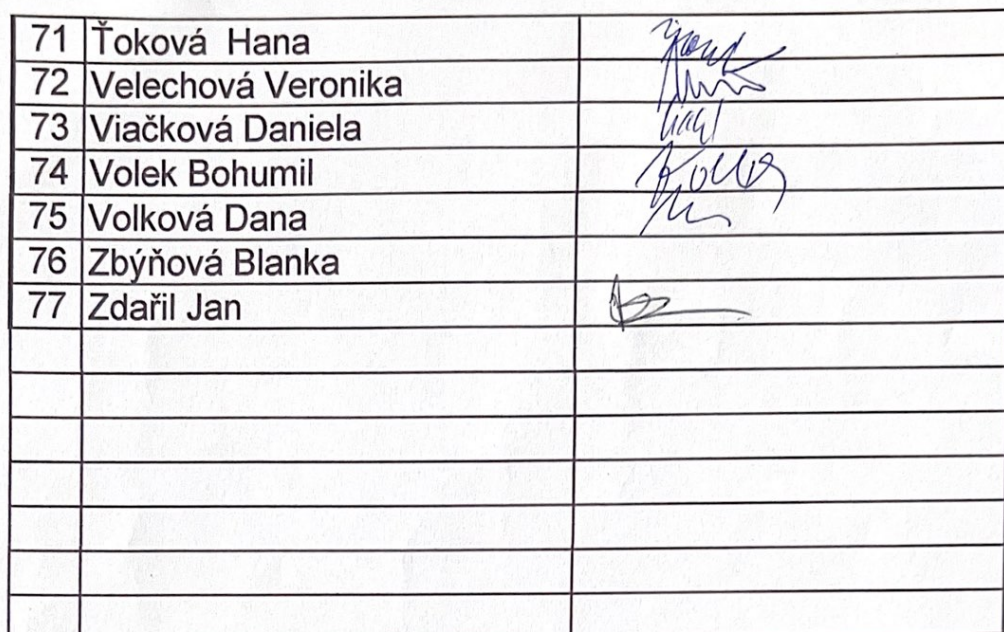 71 Ťoková Hana
72 Velechová Veronika
73 Viačková Daniela
74 Volek Bohumil
75 Volková Dana
76 Zbýňová Blanka
77 Zdařil Jan